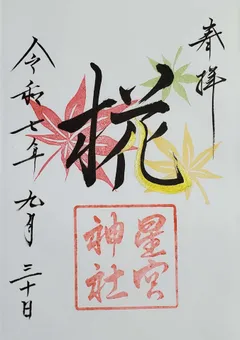 奉拝
椛
星宮
神社
令和七年九月三十日